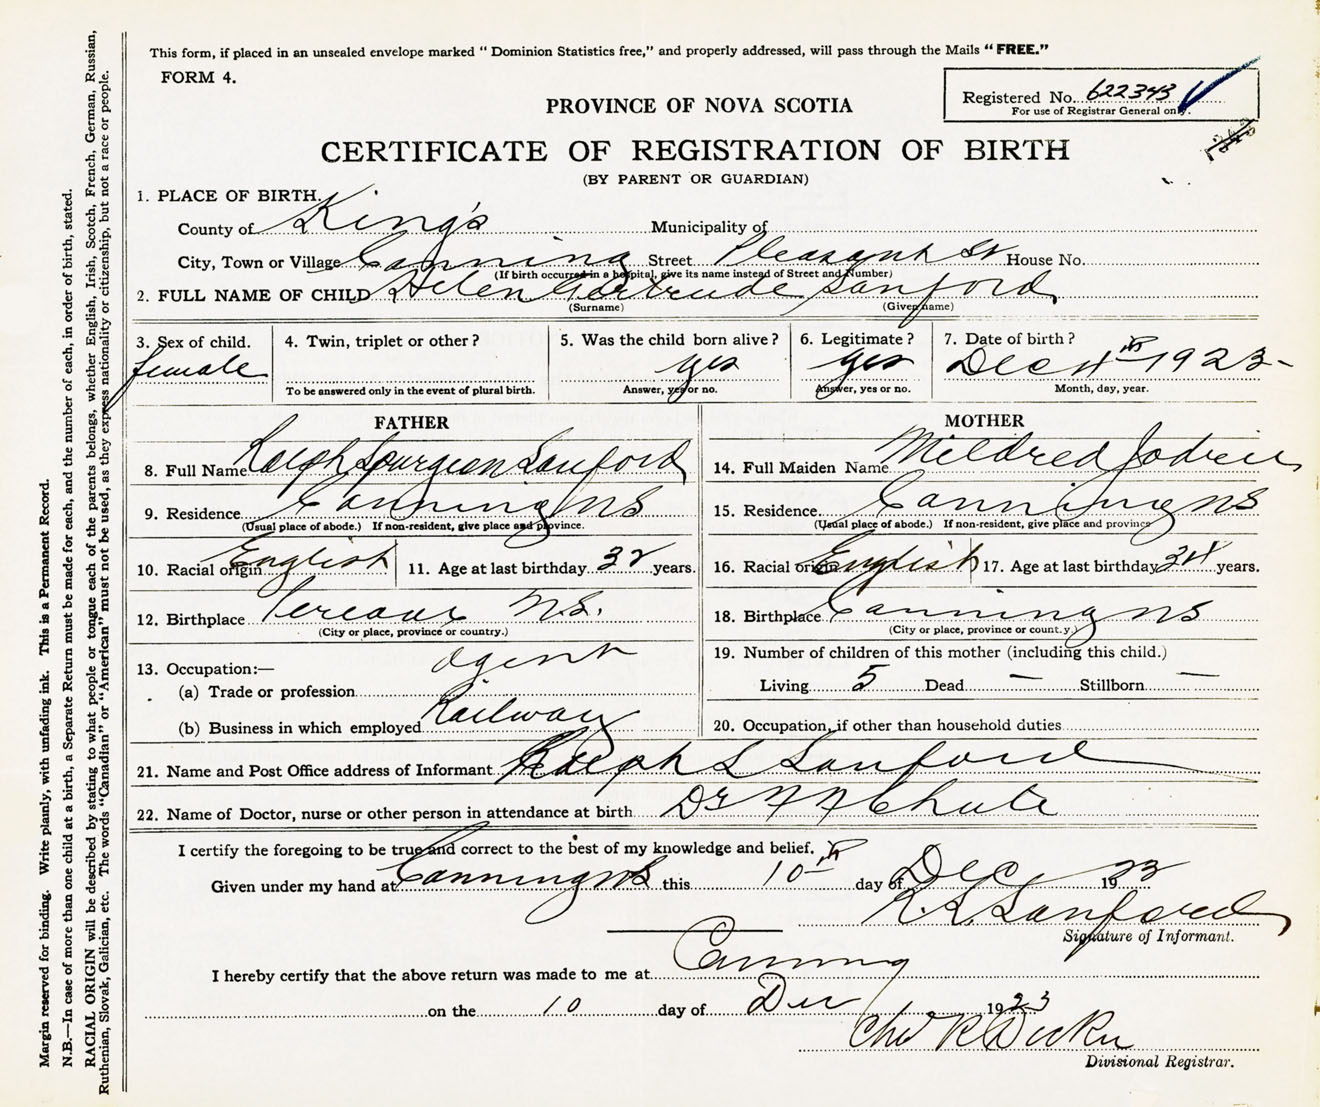 This form, if placed in an unsealed envelope marked "Dominion Statistics free," and properly addressed, will pass through the Mails "FREE."
FORM 4.
Registered No. 622343
For use of Registrar General only.
PROVINCE OF NOVA SCOTIA
CERTIFICATE OF REGISTRATION OF BIRTH
(BY PARENT OR GUARDIAN)
1. PLACE OF BIRTH.
County of King's Municipality of
City, Town or Village Canning Street Pleasant St House No.
(If birth occurred in a hospital, give its name instead of Street and Number)
2. FULL NAME OF CHILD Helen Gertrude Sanford
(Surname) (Given name)
3. Sex of child. 4. Twin, triplet or other? 5. Was the child born alive? 6. Legitimate? 7. Date of birth?
female yes yes Dec 4th 1923
To be answered only in the event of plural birth. Answer, yes or no. Answer, yes or no. Month, day, year.
FATHER MOTHER
8. Full Name Ralph Spurgeon Sanford 14. Full Maiden Name Mildred Jodrie
9. Residence Canning NS 15. Residence Canning NS
(Usual place of abode.) If non-resident, give place and province. (Usual place of abode.) If non-resident, give place and province
10. Racial origin English 11. Age at last birthday 32 years. 16. Racial origin English 17. Age at last birthday 34 years.
12. Birthplace Pereaux N.S. 18. Birthplace Canning NS
(City or place, province or country.) (City or place, province or country.)
13. Occupation:— 19. Number of children of this mother (including this child.)
(a) Trade or profession agent Living 5 Dead — Stillborn —
(b) Business in which employed Railway 20. Occupation, if other than household duties
21. Name and Post Office address of Informant Ralph S Sanford
22. Name of Doctor, nurse or other person in attendance at birth Dr Chute
I certify the foregoing to be true and correct to the best of my knowledge and belief.
Given under my hand at Canning NS this 10th day of Dec 1923
R. S. Sanford
Signature of Informant.
I hereby certify that the above return was made to me at Canning
on the 10 day of Dec 1923
Chas R Dickie
Divisional Registrar.
Margin reserved for binding. Write plainly, with unfading ink. This is a Permanent Record.
N.B.—In case of more than one child at a birth, a Separate Return must be made for each, and the number of each, in order of birth, stated.
RACIAL ORIGIN will be described by stating to what people or tongue each of the parents belongs, whether English, Irish, Scotch, French, German, Russian,
Ruthenian, Slovak, Galician, etc. The words "Canadian" or "American" must not be used, as they express nationality or citizenship, but not a race or people.